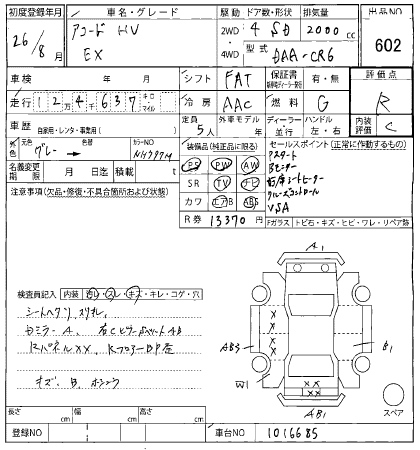 初度登録年月 車名・グレード 駆動 ドア数・形状 排気量 出品NO
26/8月 アコード HV 2WD 4 SD 2000 cc 602
EX 4WD 型式 DAA-CR6
車検 年 月 シフト FAT 保証書 有・無 評価点
走行 124637 キロ マイル 冷房 AAC 燃料 G R
車歴 自家用・レンタ・事業用( ) 定員 5人 外車モデル 年 ディーラー 並行 ハンドル 左・右 内装評価 C
外色 元色 グレー 色替 カラーNO NH797M 装備品(純正品に限る) セールスポイント(正常に作動するもの)
名義変更期限 月 日迄 積載 t PS PW AW
注意事項(欠品・修復・不具合箇所および状態) SR TV ナビ
Bモニター
クルーズコントロール
VSA
カワ エアB ABS
R券 13370円 Fガラス・トビ石・キズ・ヒビ・ワレ・リペア跡
A1
検査員記入 内装 汚レ・スレ・キズ・キレ・コゲ・穴
シートヘタリ スリキレ
RパネルXX
キズ、B
X X X
AB3 B1
W1
X X
AB1
スペア
長さ cm 幅 cm 高さ cm
登録NO 車台NO 1016685